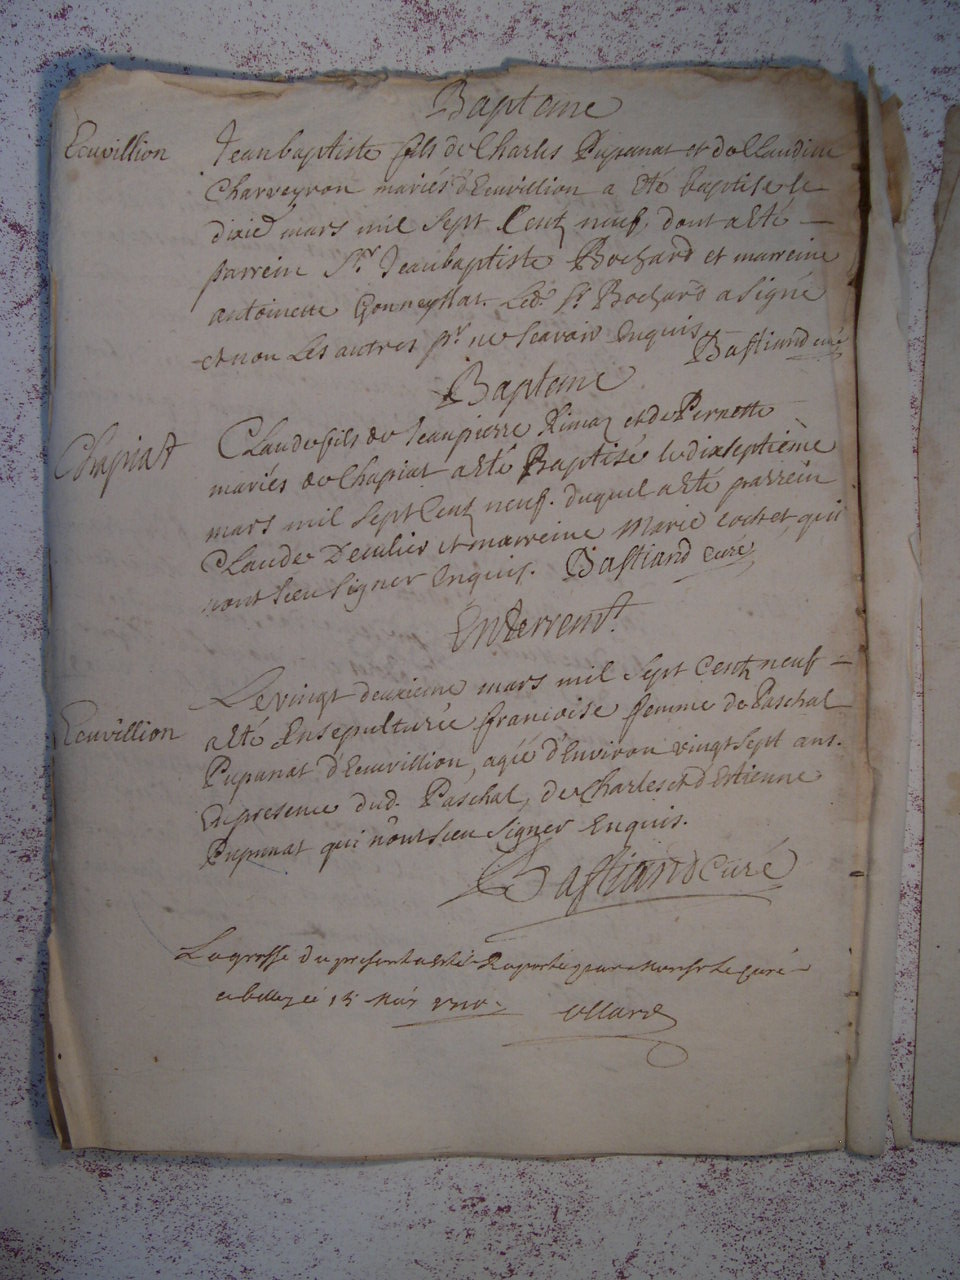 Baptome
Ecuvillion
Jeanbaptiste fils de Charles Pupunat et de Claudine
Charveyron mariés d'Ecuvillion a eté baptise le
dixie mars mil sept Cent neuf. dont a eté
parrein Sr. Jeanbaptiste Bochard et marreine
antoinette Gonneyllat. Led. Sr. Bochard a signé
et non Les autres pr. ne scavoir Enquis. Bastiand curé
Baptome
Chapiat
Claude fils de Jeanpierre et de Pernette
mariés de Chapiat a eté Baptisé le dixseptième
mars mil sept Cent neuf. duquel a eté parrein
Claude et marreine Marie cochet, qui
nont sceu signer Enquis. Bastiand curé
Enterremt.
Ecuvillion
Le vingt deuxieme mars mil Sept Cent neuf
a eté Ensepulturée francoise femme de Paschal
Pupunat d'Ecuvillion, agée d'Environ vingt sept ans.
En presence dud. Paschal, de Charles et d'Estienne
Pupunat qui n'ont sceu signer Enquis.
Bastiand curé
La grosse du present a esté Raportée par Monsr le Curé
a belley ce 15